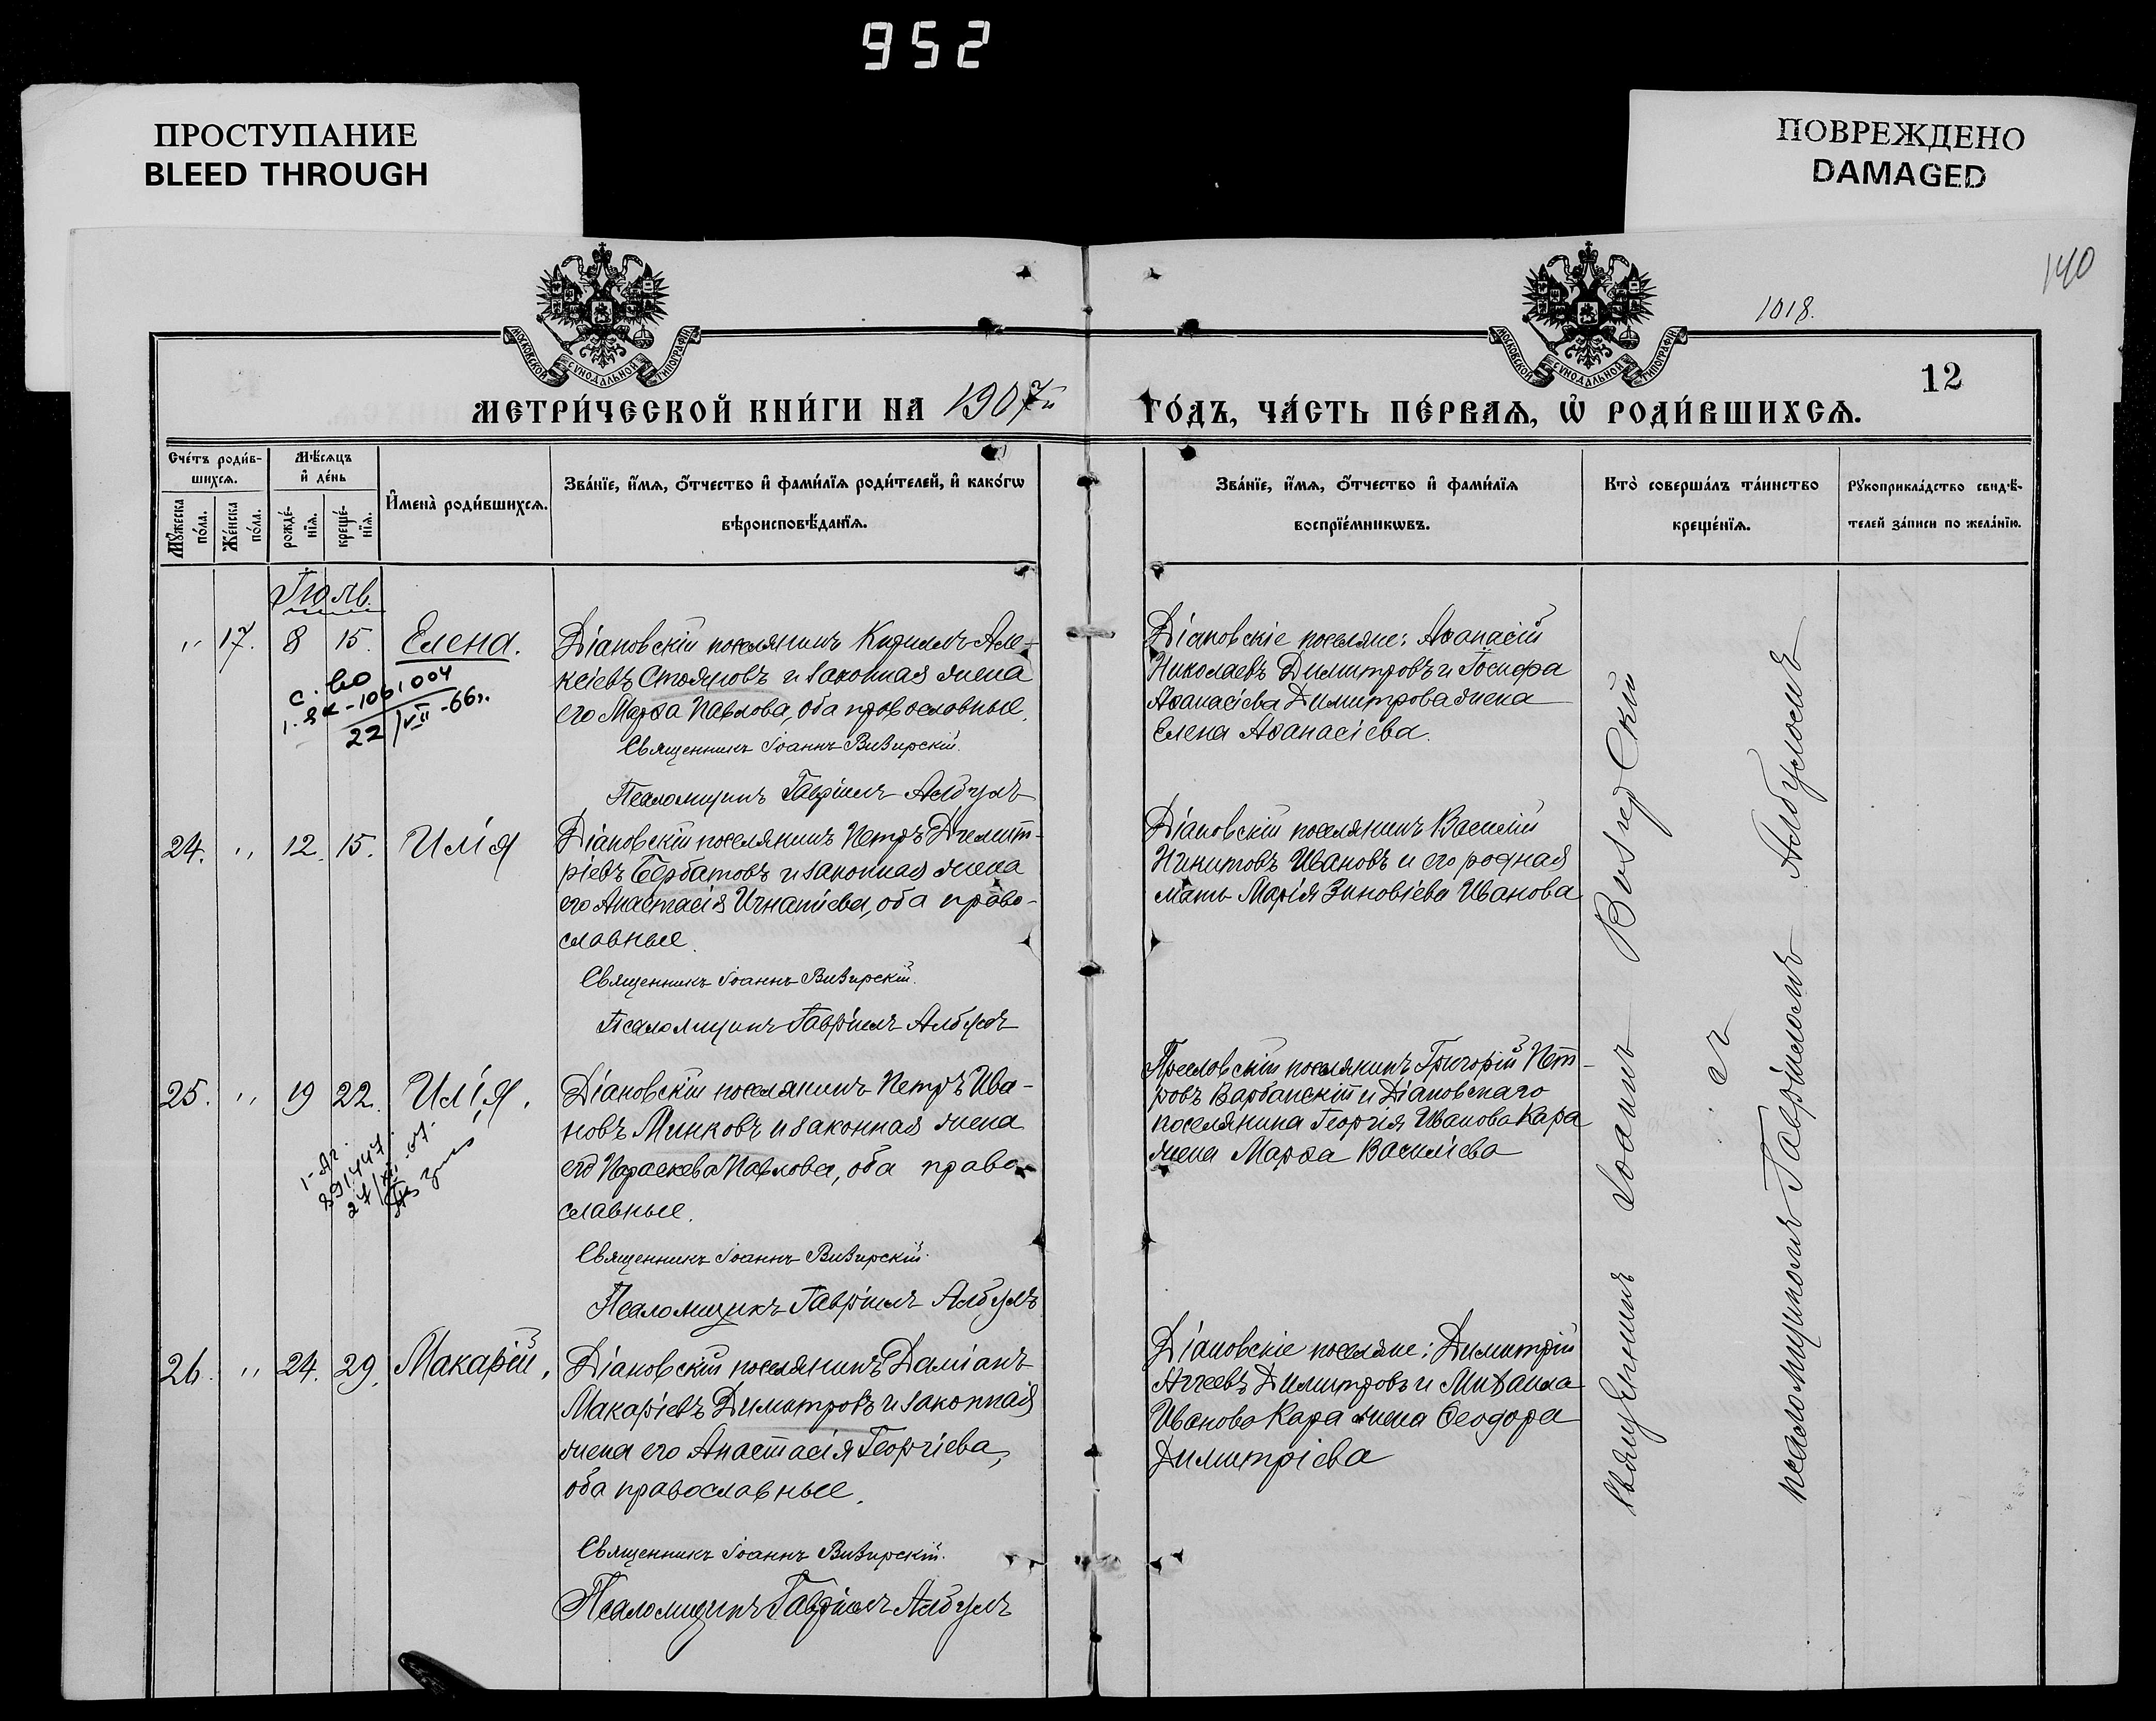 952
ПРОСТУПАНИЕ
BLEED THROUGH
ПОВРЕЖДЕНО
DAMAGED
140
1018.
12
МОСКОВСКОЙ СѴНОДАЛЬНОЙ ТИПОГРАФІИ
МОСКОВСКОЙ СѴНОДАЛЬНОЙ ТИПОГРАФІИ
МЕТРИ́ЧЕСКОЙ КНИ́ГИ НА 1907й
ГО́ДЪ, ЧА́СТЬ ПЕ́РВАѦ, Ѡ҆ РОДИ́ВШИХСѦ.
Сче́тъ роди́в-
шихсѧ.
Мꙋ́жеска по́ла.
Же́нска по́ла.
Мѣ́сѧцъ
и҆ де́нь
рожде́-
нїѧ.
креще́-
нїѧ.
И҆мена̀ роди́вшихсѧ.
Зва́нїе, и҆́мѧ, ѻ҆́тчество и҆ фами́лїѧ роди́телей, и҆ како́гѡ
вѣроисповѣ́данїѧ.
Зва́нїе, и҆́мѧ, ѻ҆́тчество и҆ фами́лїѧ
воспрїе́мникѡвъ.
Кто̀ соверша́лъ та́инство
креще́нїѧ.
Рꙋкоприкла́дство свидѣ́-
телей за́писи по жела́нїю.
Іюль.
„ 17. 8 15. Елена.
Діановскій поселянинъ Кириллъ Але-
ксіевъ Стояновъ и законная жена
его Марѳа Павлова, оба православные.
Священникъ Іоаннъ Визирскій.
Псаломщикъ Гавріилъ Албулъ
Діановскіе поселяне: Аѳанасій
Николаевъ Димитровъ и Іосифа
Аѳанасіева Димитрова жена
Елена Аѳанасіева.
с. во
1-ЯК-1061004
22/VII-66г.
24. „ 12. 15. Илія
Діановскій поселянинъ Петръ Димит-
ріевъ Бербатовъ и законная жена
его Анастасія Игнатіева, оба право-
славные.
Священникъ Іоаннъ Визирскій.
Псаломщикъ Гавріилъ Албулъ
Діановскій поселянинъ Василій
Никитовъ Ивановъ и его родная
мать Марія Зиновіева Иванова
25. „ 19 22. Илія.
Діановскій поселянинъ Петръ Ива-
новъ Минковъ и законная жена
его Параскева Павлова, оба право-
славные.
Священникъ Іоаннъ Визирскій.
Псаломщикъ Гавріилъ Албулъ
поселянинъ Григорій Пет-
ровъ Варбанскій и Діановскаго
поселянина Георгія Иванова Кара
жена Марѳа Василіева
26. „ 24. 29. Макарій.
Діановскій поселянинъ Даміанъ
Макаріевъ Димитровъ и законная
жена его Анастасія Георгіева,
оба православные.
Священникъ Іоаннъ Визирскій.
Псаломщикъ Гавріилъ Албулъ
Діановскіе поселяне: Димитрій
Димитровъ и Михаила
Иванова Кара жена Ѳеодора
Димитріева
Священникъ Іоаннъ Визирскій
съ
псаломщикомъ Гавріиломъ Албуломъ